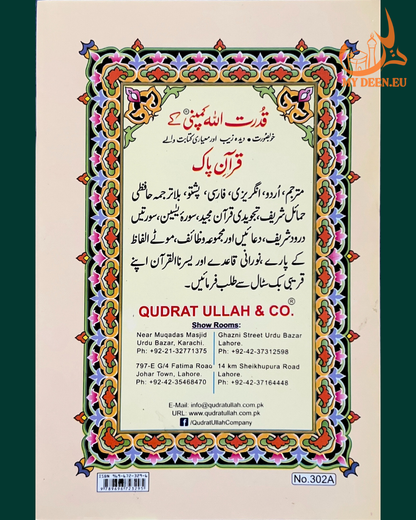 MY DEEN.EU
قدرت اللہ کمپنی® کے
خوبصورت • دیدہ زیب اور معیاری کتابت والے
قرآن پاک
مترجم، اُردو، انگریزی، فارسی، پشتو، بلاترجمہ حافظی
حمائل شریف، تجویدی قرآن مجید، سورۂ یٰسین، سورتیں
درود شریف، دعائیں اور مجموعہ وظائف، موٹے الفاظ
کے پارے، نورانی قاعدے اور یسرنا القرآن اپنے
قریبی بک سٹال سے طلب فرمائیں۔
QUDRAT ULLAH & CO.®
Show Rooms:
Near Muqadas Masjid
Urdu Bazar, Karachi.
Ph: +92-21-32771375
Ghazni Street Urdu Bazar
Lahore.
Ph: +92-42-37312598
797-E G/4 Fatima Road
Johar Town, Lahore.
Ph: +92-42-35468470
14 km Sheikhupura Road
Lahore.
Ph: +92-42-37164448
E-Mail: info@qudratullah.com.pk
URL: www.qudratullah.com.pk
/QudratUllahCompany
ISBN 969-672-329-6
No.302A